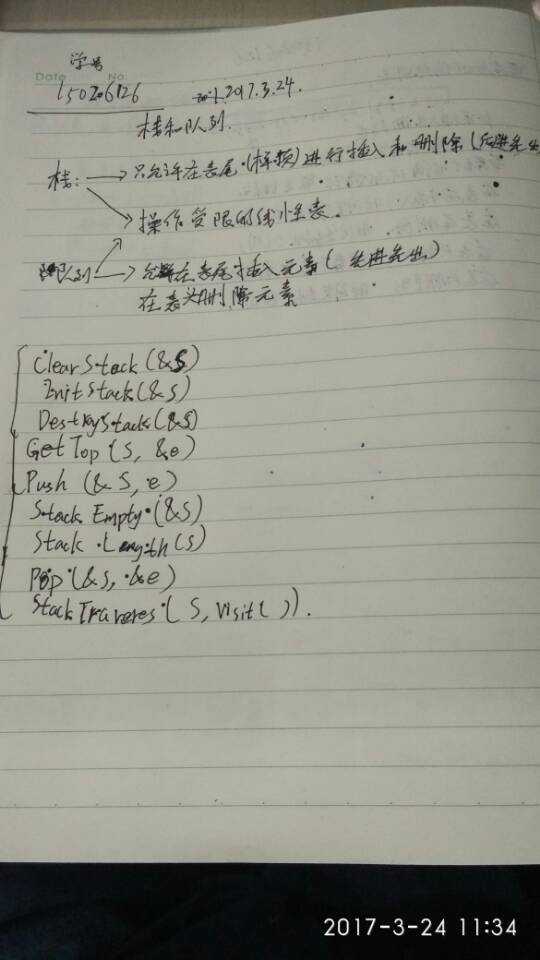 学号
Date No.
15026126 2017.3.24.
栈和队列.
栈: 只允许在表尾(栈顶)进行插入和删除(后进先出
操作受限的线性表.
队列 允许在表尾插入元素(先进先出)
在表头删除元素
ClearStack(&S)
InitStack(&S)
DestryStack(&S)
GetTop(S, &e)
Push(&S, e)
StackEmpty(&S)
Stack Length(S)
Pop(&S, &e)
StackTraveres(S, Visit()).
2017-3-24 11:34